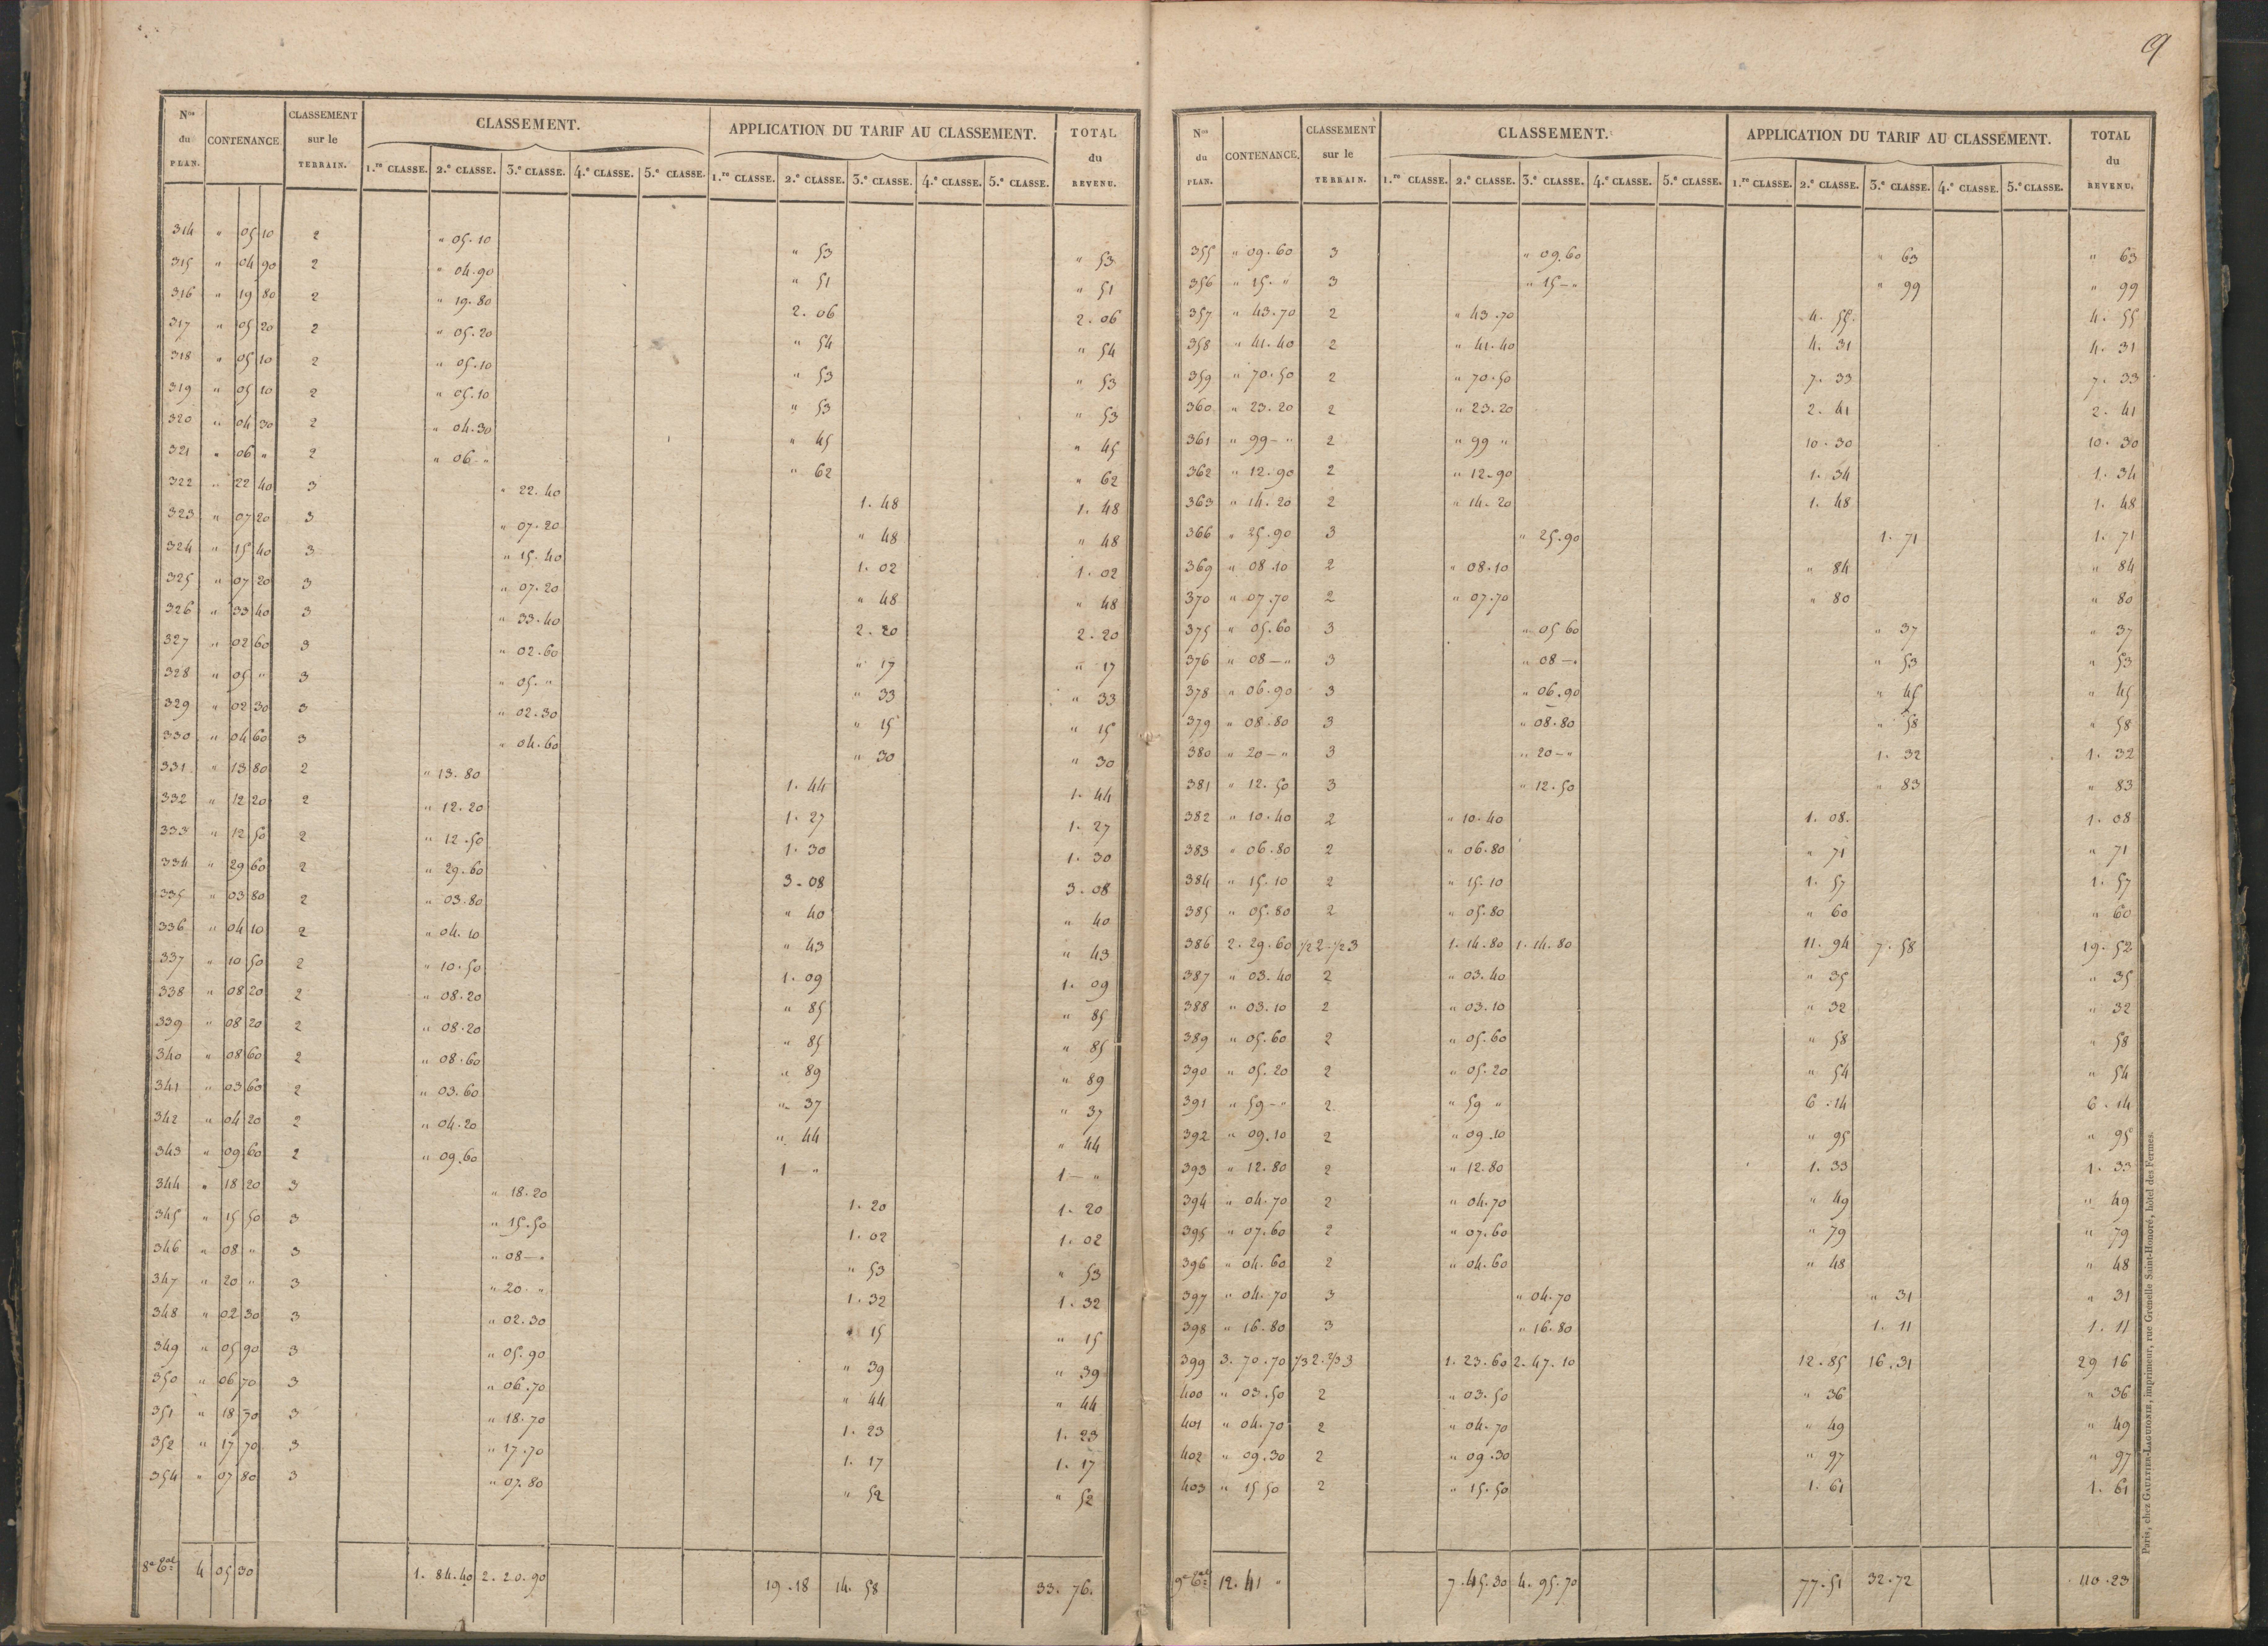 9
Nos du PLAN. CONTENANCE. CLASSEMENT sur le TERRAIN. CLASSEMENT. APPLICATION DU TARIF AU CLASSEMENT. TOTAL du REVENU.
1.re CLASSE. 2.e CLASSE. 3.e CLASSE. 4.e CLASSE. 5.e CLASSE. 1.re CLASSE. 2.e CLASSE. 3.e CLASSE. 4.e CLASSE. 5.e CLASSE.
314 " 05 10 2 " 05.10 " 53 " 53
315 " 04 90 2 " 04.90 " 51 " 51
316 " 19 80 2 " 19.80 2.06 2.06
317 " 05 20 2 " 05.20 " 54 " 54
318 " 05 10 2 " 05.10 " 53 " 53
319 " 05 10 2 " 05.10 " 53 " 53
320 " 04 30 2 " 04.30 " 45 " 45
321 " 06 " 2 " 06 " " 62 " 62
322 " 22 40 3 " 22.40 1.48 1.48
323 " 07 20 3 " 07.20 " 48 " 48
324 " 15 40 3 " 15.40 1.02 1.02
325 " 07 20 3 " 07.20 " 48 " 48
326 " 33 40 3 " 33.40 2.20 2.20
327 " 02 60 3 " 02.60 " 17 " 17
328 " 05 " 3 " 05." " 33 " 33
329 " 02 30 3 " 02.30 " 15 " 15
330 " 04 60 3 " 04.60 " 30 " 30
331 " 13 80 2 " 13.80 1.44 1.44
332 " 12 20 2 " 12.20 1.27 1.27
333 " 12 50 2 " 12.50 1.30 1.30
334 " 29 60 2 " 29.60 3.08 3.08
335 " 03 80 2 " 03.80 " 40 " 40
336 " 04 10 2 " 04.10 " 43 " 43
337 " 10 50 2 " 10.50 1.09 1.09
338 " 08 20 2 " 08.20 " 85 " 85
339 " 08 20 2 " 08.20 " 85 " 85
340 " 08 60 2 " 08.60 " 89 " 89
341 " 03 60 2 " 03.60 " 37 " 37
342 " 04 20 2 " 04.20 " 44 " 44
343 " 09 60 2 " 09.60 1 — " 1 — "
344 " 18 20 3 " 18.20 1.20 1.20
345 " 15 50 3 " 15.50 1.02 1.02
346 " 08 " 3 " 08 — " " 53 " 53
347 " 20 " 3 " 20 " 1.32 1.32
348 " 02 30 3 " 02.30 " 15 " 15
349 " 05 90 3 " 05.90 " 39 " 39
350 " 06 70 3 " 06.70 " 44 " 44
351 " 18 70 3 " 18.70 1.23 1.23
352 " 17 70 3 " 17.70 1.17 1.17
354 " 07 80 3 " 07.80 " 52 " 52
4 05 30 1.84.40 2.20.90 19.18 14.58 33.76.
Nos du PLAN. CONTENANCE. CLASSEMENT sur le TERRAIN. CLASSEMENT. APPLICATION DU TARIF AU CLASSEMENT. TOTAL du REVENU.
1.re CLASSE. 2.e CLASSE. 3.e CLASSE. 4.e CLASSE. 5.e CLASSE. 1.re CLASSE. 2.e CLASSE. 3.e CLASSE. 4.e CLASSE. 5.e CLASSE.
355 " 09.60 3 " 09.60 " 63 " 63
356 " 15. " 3 " 15 — " " 99 " 99
357 " 43.70 2 " 43.70 4.55 4.55
358 " 41.40 2 " 41.40 4.31 4.31
359 " 70.50 2 " 70.50 7.33 7.33
360 " 23.20 2 " 23.20 2.41 2.41
361 " 99 — " 2 " 99 " 10.30 10.30
362 " 12.90 2 " 12.90 1.34 1.34
363 " 14.20 2 " 14.20 1.48 1.48
366 " 25.90 3 " 25.90 1.71 1.71
369 " 08.10 2 " 08.10 " 84 " 84
370 " 07.70 2 " 07.70 " 80 " 80
375 " 05.60 3 " 05.60 " 37 " 37
376 " 08 — " 3 " 08 — " " 53 " 53
378 " 06.90 3 " 06.90 " 45 " 45
379 " 08.80 3 " 08.80 " 58 " 58
380 " 20 — " 3 " 20 — " 1.32 1.32
381 " 12.50 3 " 12.50 " 83 " 83
382 " 10.40 2 " 10.40 1.08. 1.08
383 " 06.80 2 " 06.80 " 71 " 71
384 " 15.10 2 " 15.10 1.57 1.57
385 " 05.80 2 " 05.80 " 60 " 60
386 2.29.60 1/2 2-1/2 3 1.14.80 1.14.80 11.94 7.58 19.52
387 " 03.40 2 " 03.40 " 35 " 35
388 " 03.10 2 " 03.10 " 32 " 32
389 " 05.60 2 " 05.60 " 58 " 58
390 " 05.20 2 " 05.20 " 54 " 54
391 " 59 — " 2 " 59 " 6.14 6.14
392 " 09.10 2 " 09.10 " 95 " 95
393 " 12.80 2 " 12.80 1.33 1.33
394 " 04.70 2 " 04.70 " 49 " 49
395 " 07.60 2 " 07.60 " 79 " 79
396 " 04.60 2 " 04.60 " 48 " 48
397 " 04.70 3 " 04.70 " 31 " 31
398 " 16.80 3 " 16.80 1.11 1.11
399 3.70.70 1/3 2.2/3 3 1.23.60 2.47.10 12.85 16.31 29 16
400 " 03.50 2 " 03.50 " 36 " 36
401 " 04.70 2 " 04.70 " 49 " 49
402 " 09.30 2 " 09.30 " 97 " 97
403 " 15 50 2 " 15.50 1.61 1.61
12.41 " 7.45.30 4.95.70 77.51 32.72 110.23
Paris, chez GAULTIER-LAGUIONIE, imprimeur, rue Grenelle Saint-Honoré, hôtel des Fermes.